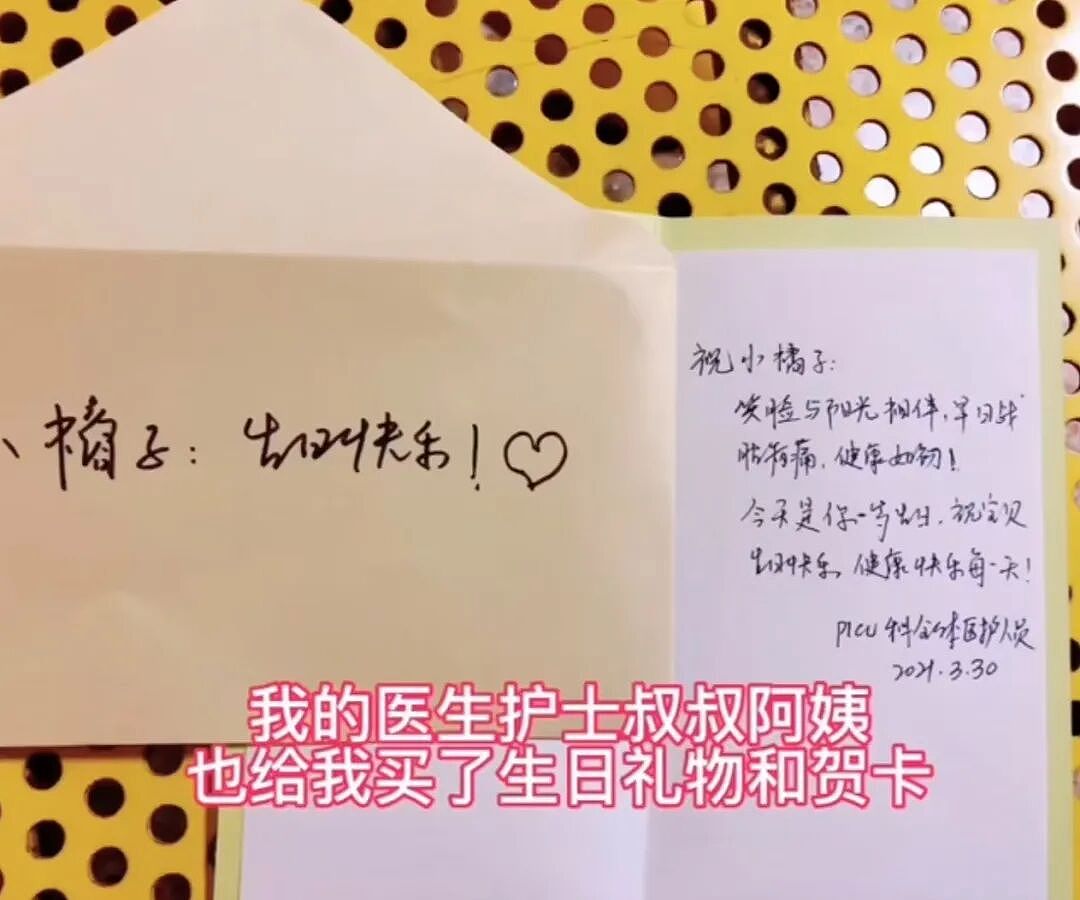 小橘子：生日快乐！♡
祝小橘子：
笑脸与阳光相伴，早日战
胜病痛，健康如初！
今天是你一岁生日，祝宝贝
生日快乐，健康快乐每一天！
PICU 科全体医护人员
2021.3.30
我的医生护士叔叔阿姨
也给我买了生日礼物和贺卡